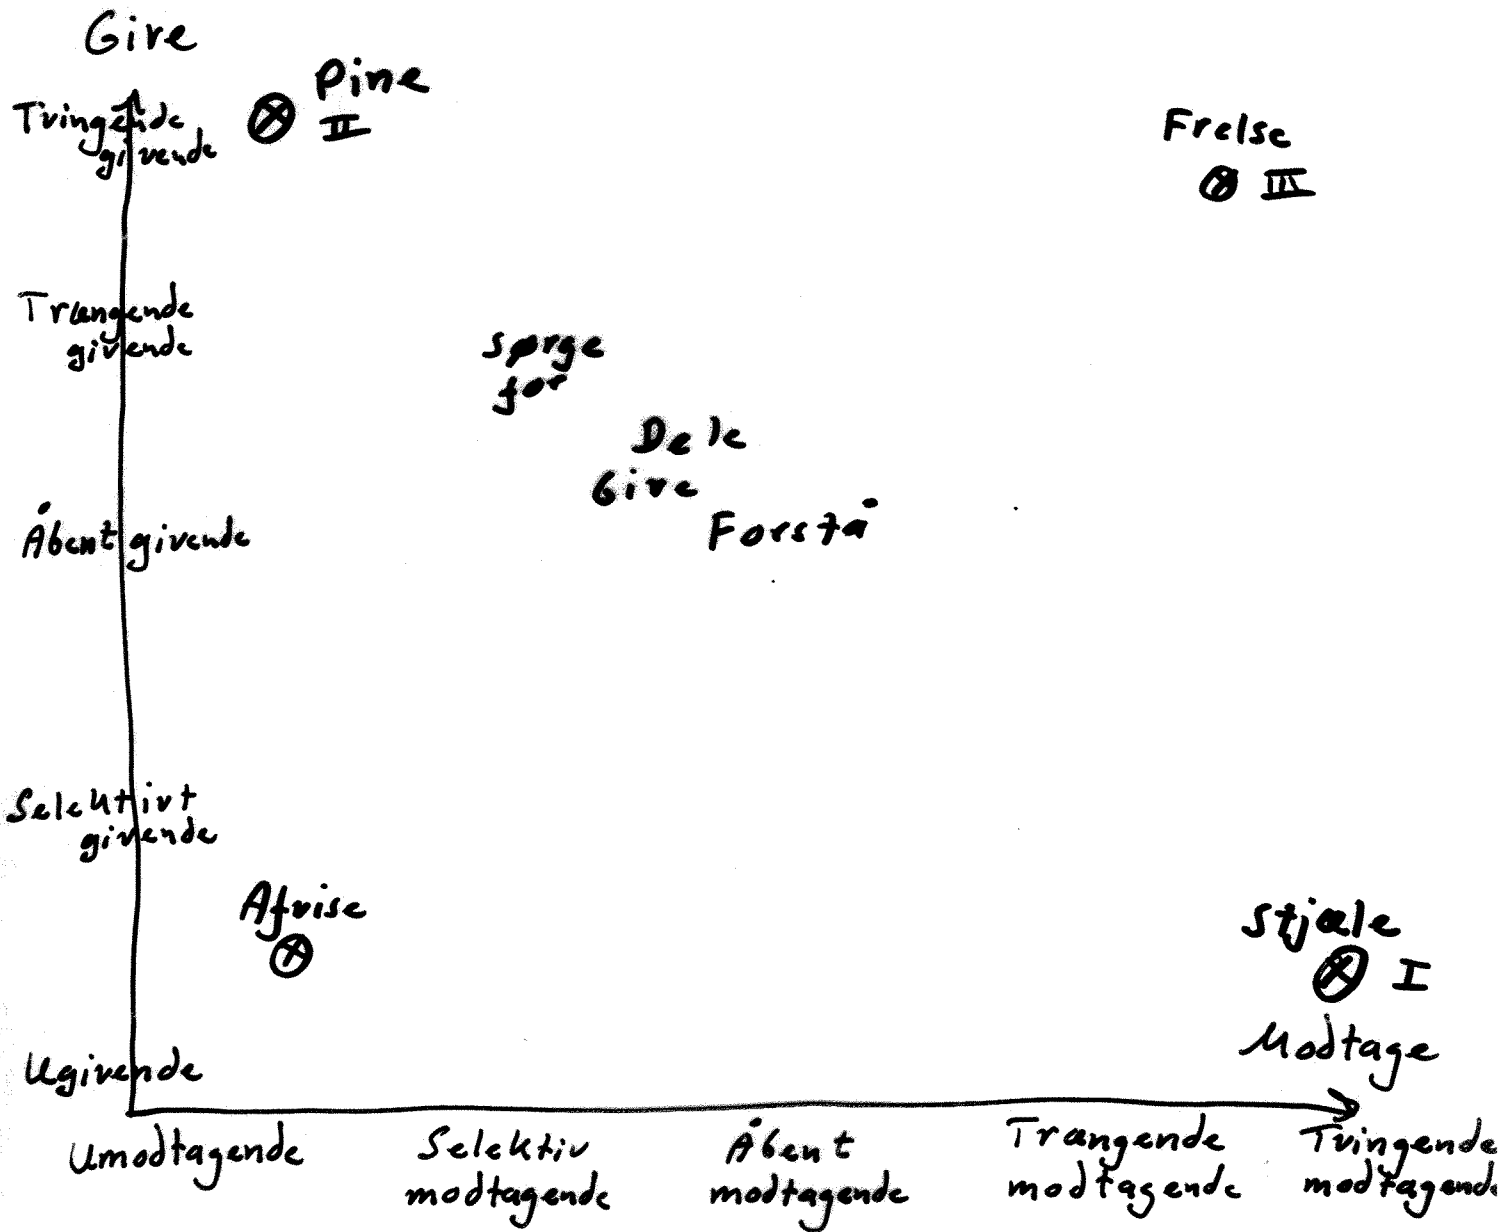 Give
Pine
Tvingende
givende
II
Frelse
III
Trængende
givende
Sørge
for
Dele
Give
Forstå
Åbent givende
Selektivt
givende
Afvise
Stjæle
I
Modtage
Ugivende
Umodtagende
Selektiv
modtagende
Åbent
modtagende
Trængende
modtagende
Tvingende
modtagende